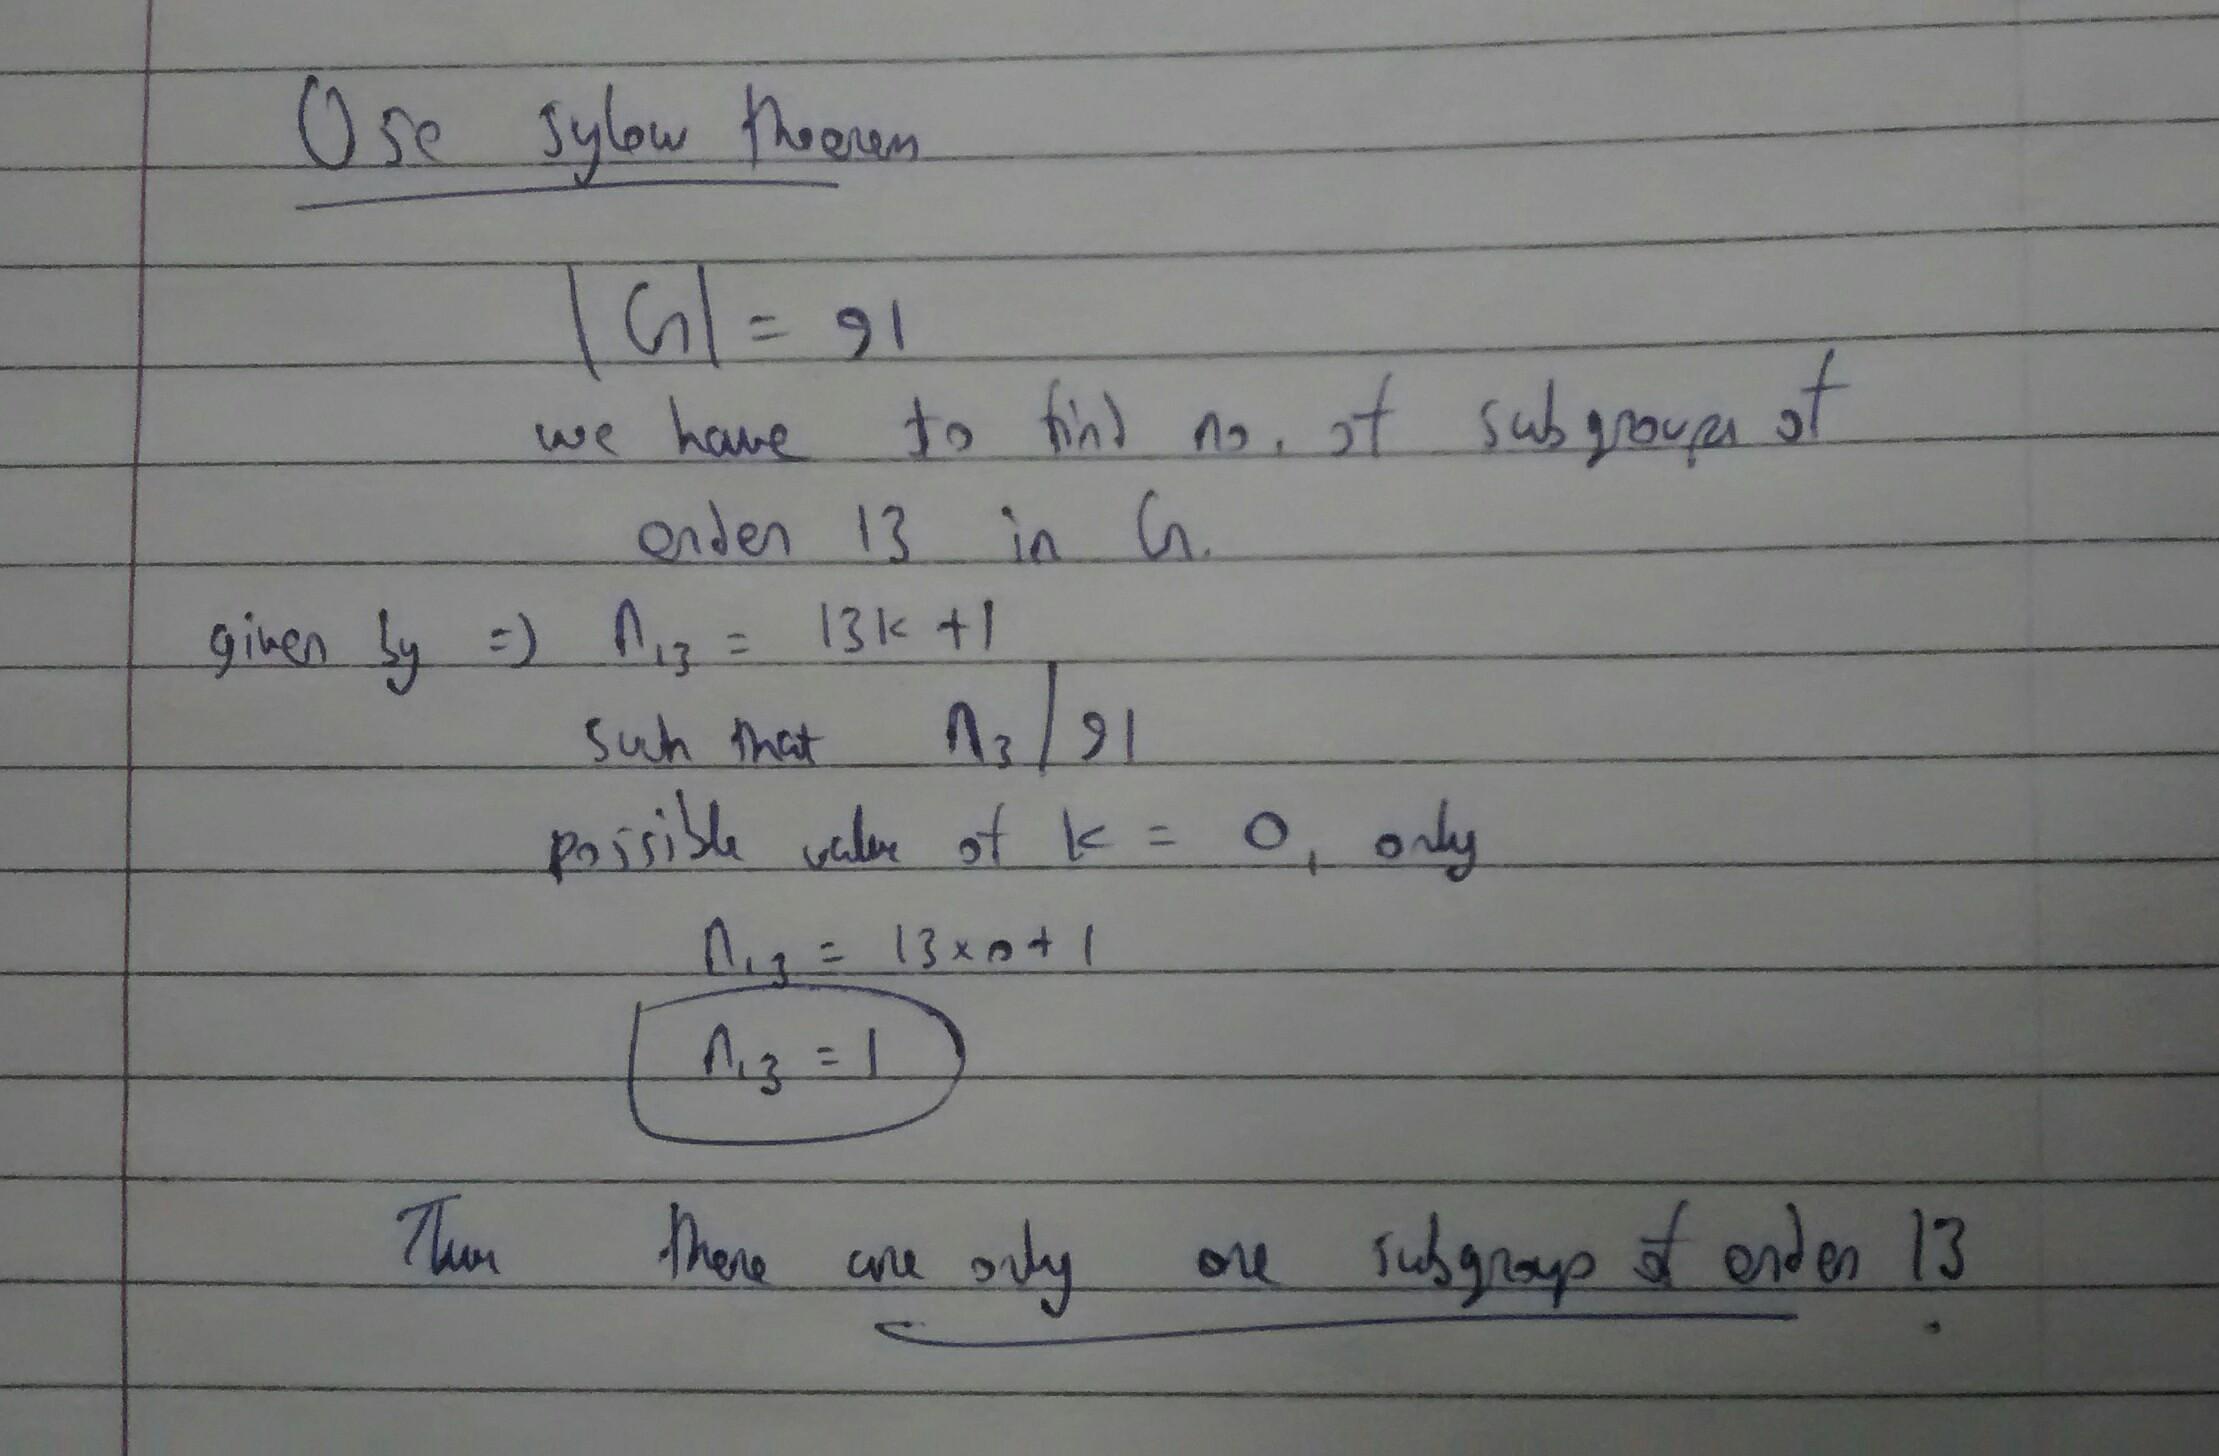 Use sylow theorem
|G| = 91
we have to find no. of subgroups of
order 13 in G.
given by => n₁₃ = 13k +1
such that n₃ | 91
possible value of k = 0, only
n₁₃ = 13×0+1
n₁₃ = 1
Thus there are only one subgroup of order 13.